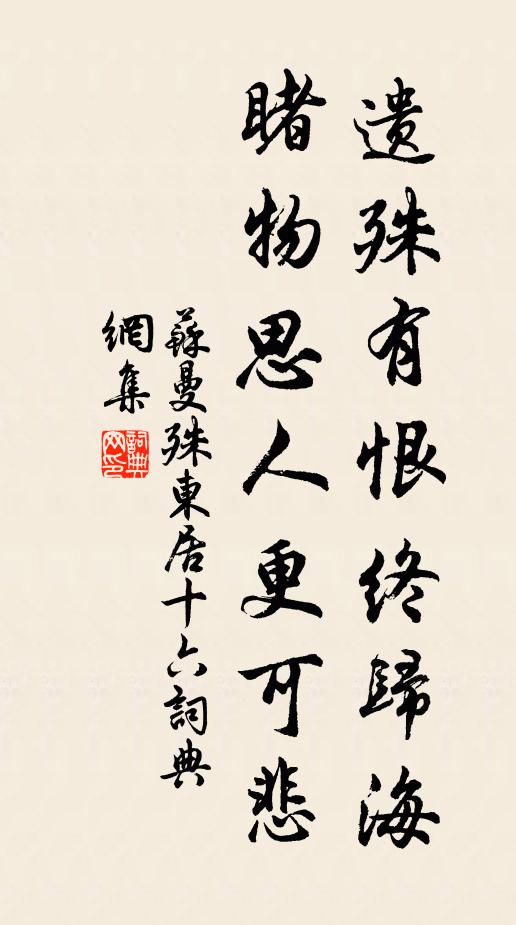 遺殊有恨終歸海
睹物思人更可悲
蘇曼殊東居十六詞典
網集
詞典
网印